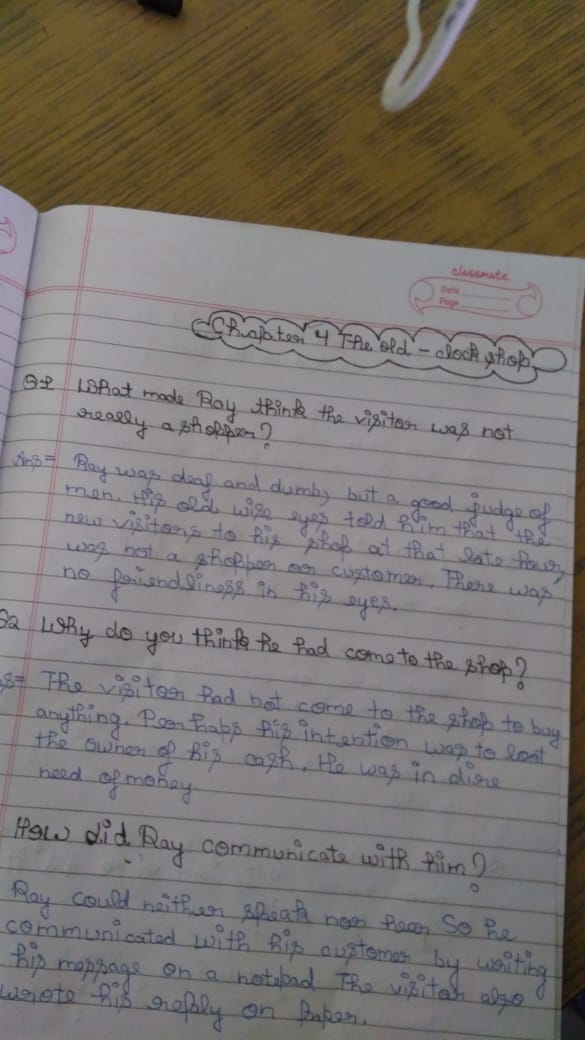 classmate
Date
Page
Chapter 4 The old - clock shop
Q1 What made Ray think the visitor was not
really a shopper?
Ans= Ray was deaf and dumb, but a good judge of
men. His old wise eyes told him that the
new visitors to his shop at that late hour,
was not a shopper or customer. There was
no friendliness in his eyes.
Q2 Why do you think he had come to the shop?
s= The visitor had not come to the shop to buy
anything. Perhaps his intention was to loot
the owner of his cash. He was in dire
need of money
How did Ray communicate with him?
Ray could neither speak nor hear So he
communicated with his customer by writing
his message on a notepad The visitor also
wrote his reply on paper.